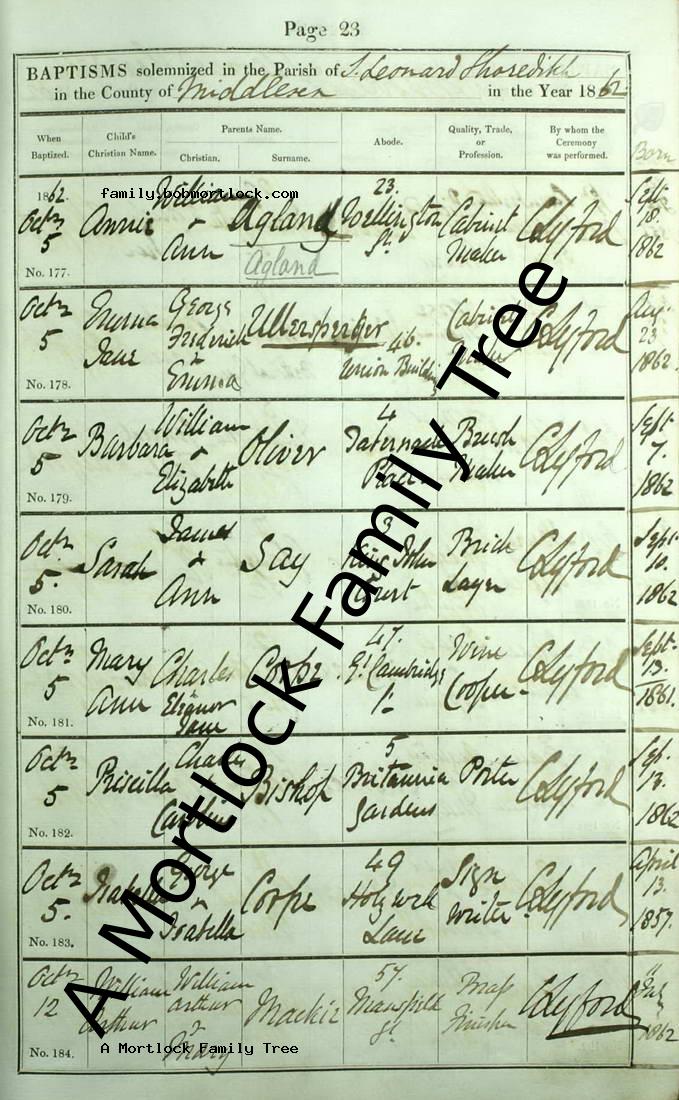 Page 23
BAPTISMS solemnized in the Parish of St. Leonard Shoreditch
in the County of Middlesex in the Year 1862
When Baptized. Child's Christian Name. Parents Name. Christian. Surname. Abode. Quality, Trade, or Profession. By whom the Ceremony was performed. Born
1862. Octr 5 Annie William & Ann Agland Agland 23. Wellington St. Cabinet Maker Sept 18. 1862
family.bobmortlock.com
No. 177.
Octr 5 Emma Jane George Frederick & Emma Ullersperger 46. Union Buildings Cabinet Maker Aug. 23 1862.
No. 178.
Octr 5 Barbara William & Elizabeth Oliver 4 Tabernacle Place Brush Maker Sept. 7. 1862
No. 179.
Octr 5. Sarah James & Ann Say 3 King John Court Brick Layer Sept. 10. 1862
No. 180.
Octr 5 Mary Ann Charles Eleanor Jane Corpe 47. Gt. Cambridge St Wine Cooper Sept. 13. 1861.
No. 181.
Octr 5 Priscilla Charles Caroline Bishop 5 Britannia Gardens Porter Sept. 1862
No. 182.
Octr 5. Isabella George & Isabella Corpe 49 Holywell Lane Sign Writer April 13. 1857.
No. 183.
Octr 12 William Arthur William Arthur & Mary Mackie 57. Mansfield St. Brass Finisher 1862
No. 184.
A Mortlock Family Tree
A Mortlock Family Tree